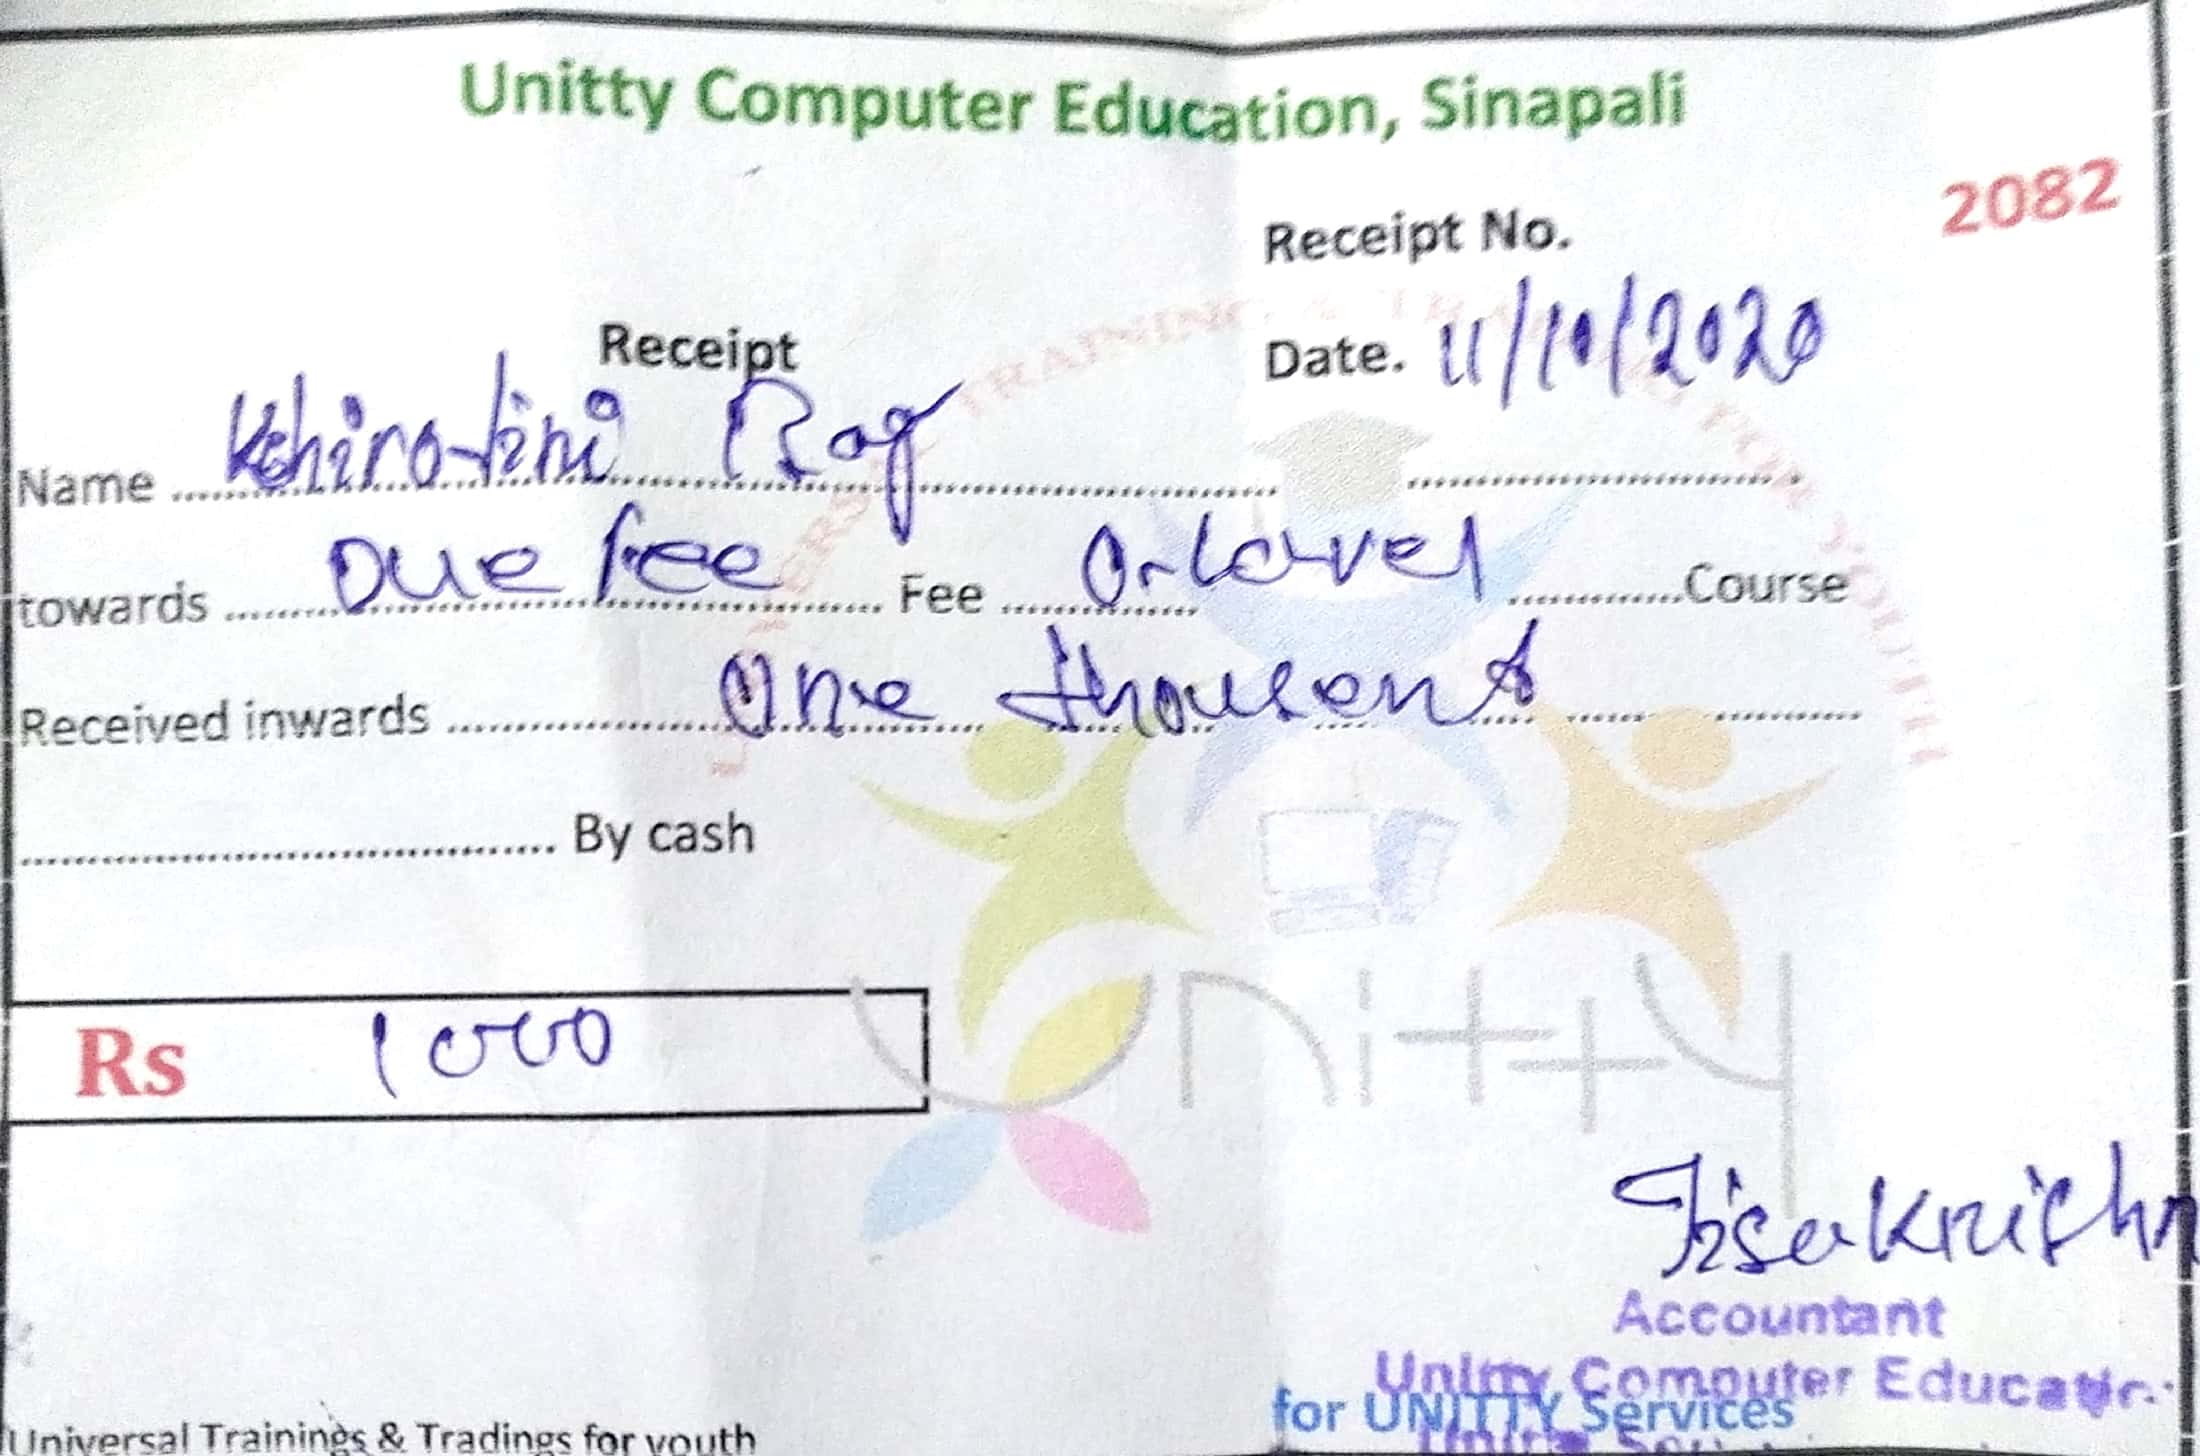 Unitty Computer Education, Sinapali
2082
Receipt No.
Receipt
Date. 11/10/2020
Name Kshirotini Bag
towards Due fee Fee O-Level Course
Received inwards One thousand
By cash
Rs 1000
Unitty
Accountant
Unitty Computer Education
for UNITTY Services
Universal Trainings & Tradings for youth